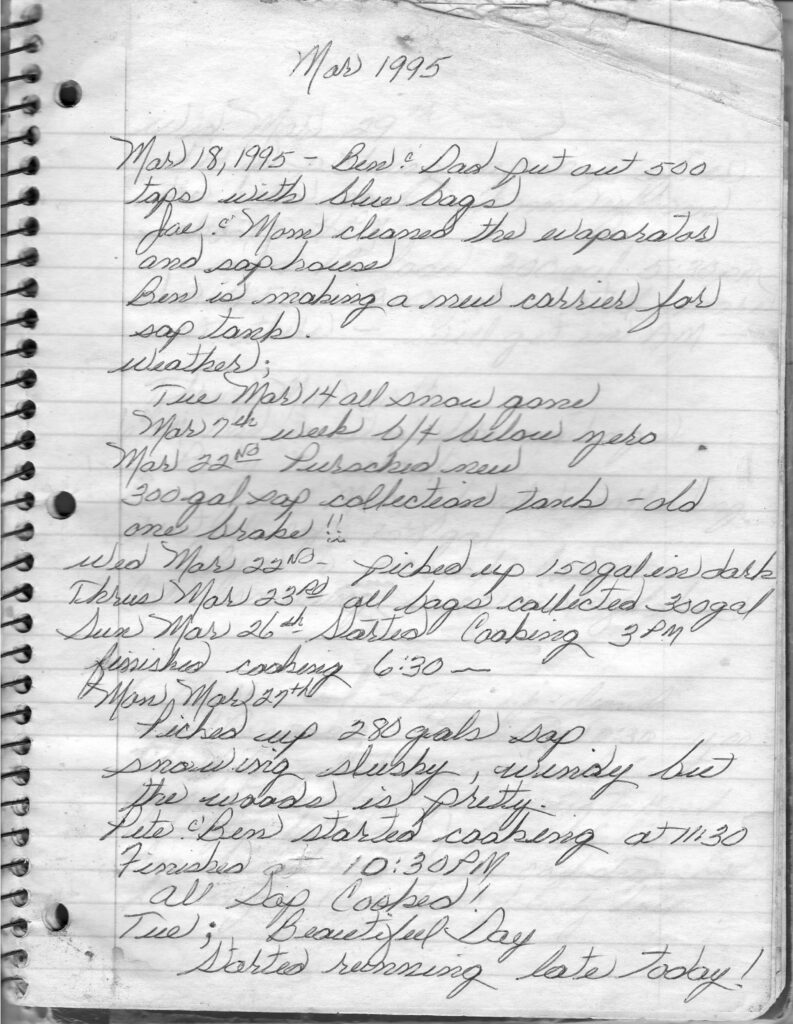 Mar 1995
Mar 18, 1995 - Ben & Dad put out 500
taps with blue bags
Joe & Mone cleaned the evaporator
and sap house
Ben is making a new carrier for
sap tank.
weather;
Tue Mar 14 all snow gone
Mar 7th week b/4 below zero
Mar 22ND Pursched new
300 gal sap collection tank - old
one brake!!
Wed Mar 22ND - picked up 150 gal in dark
Thrus Mar 23RD all bags collected 300 gal
Sun Mar 26th Started Cooking 3 PM
finished cooking 6:30 —
Mon Mar 27th
Picked up 280 gals sap
snowing slushy, windy but
the woods is pretty.
Pete & Ben started cooking at 11:30
Finished at 10:30 PM
all Sap Cooked!
Tue; Beautiful Day
Started running late today!